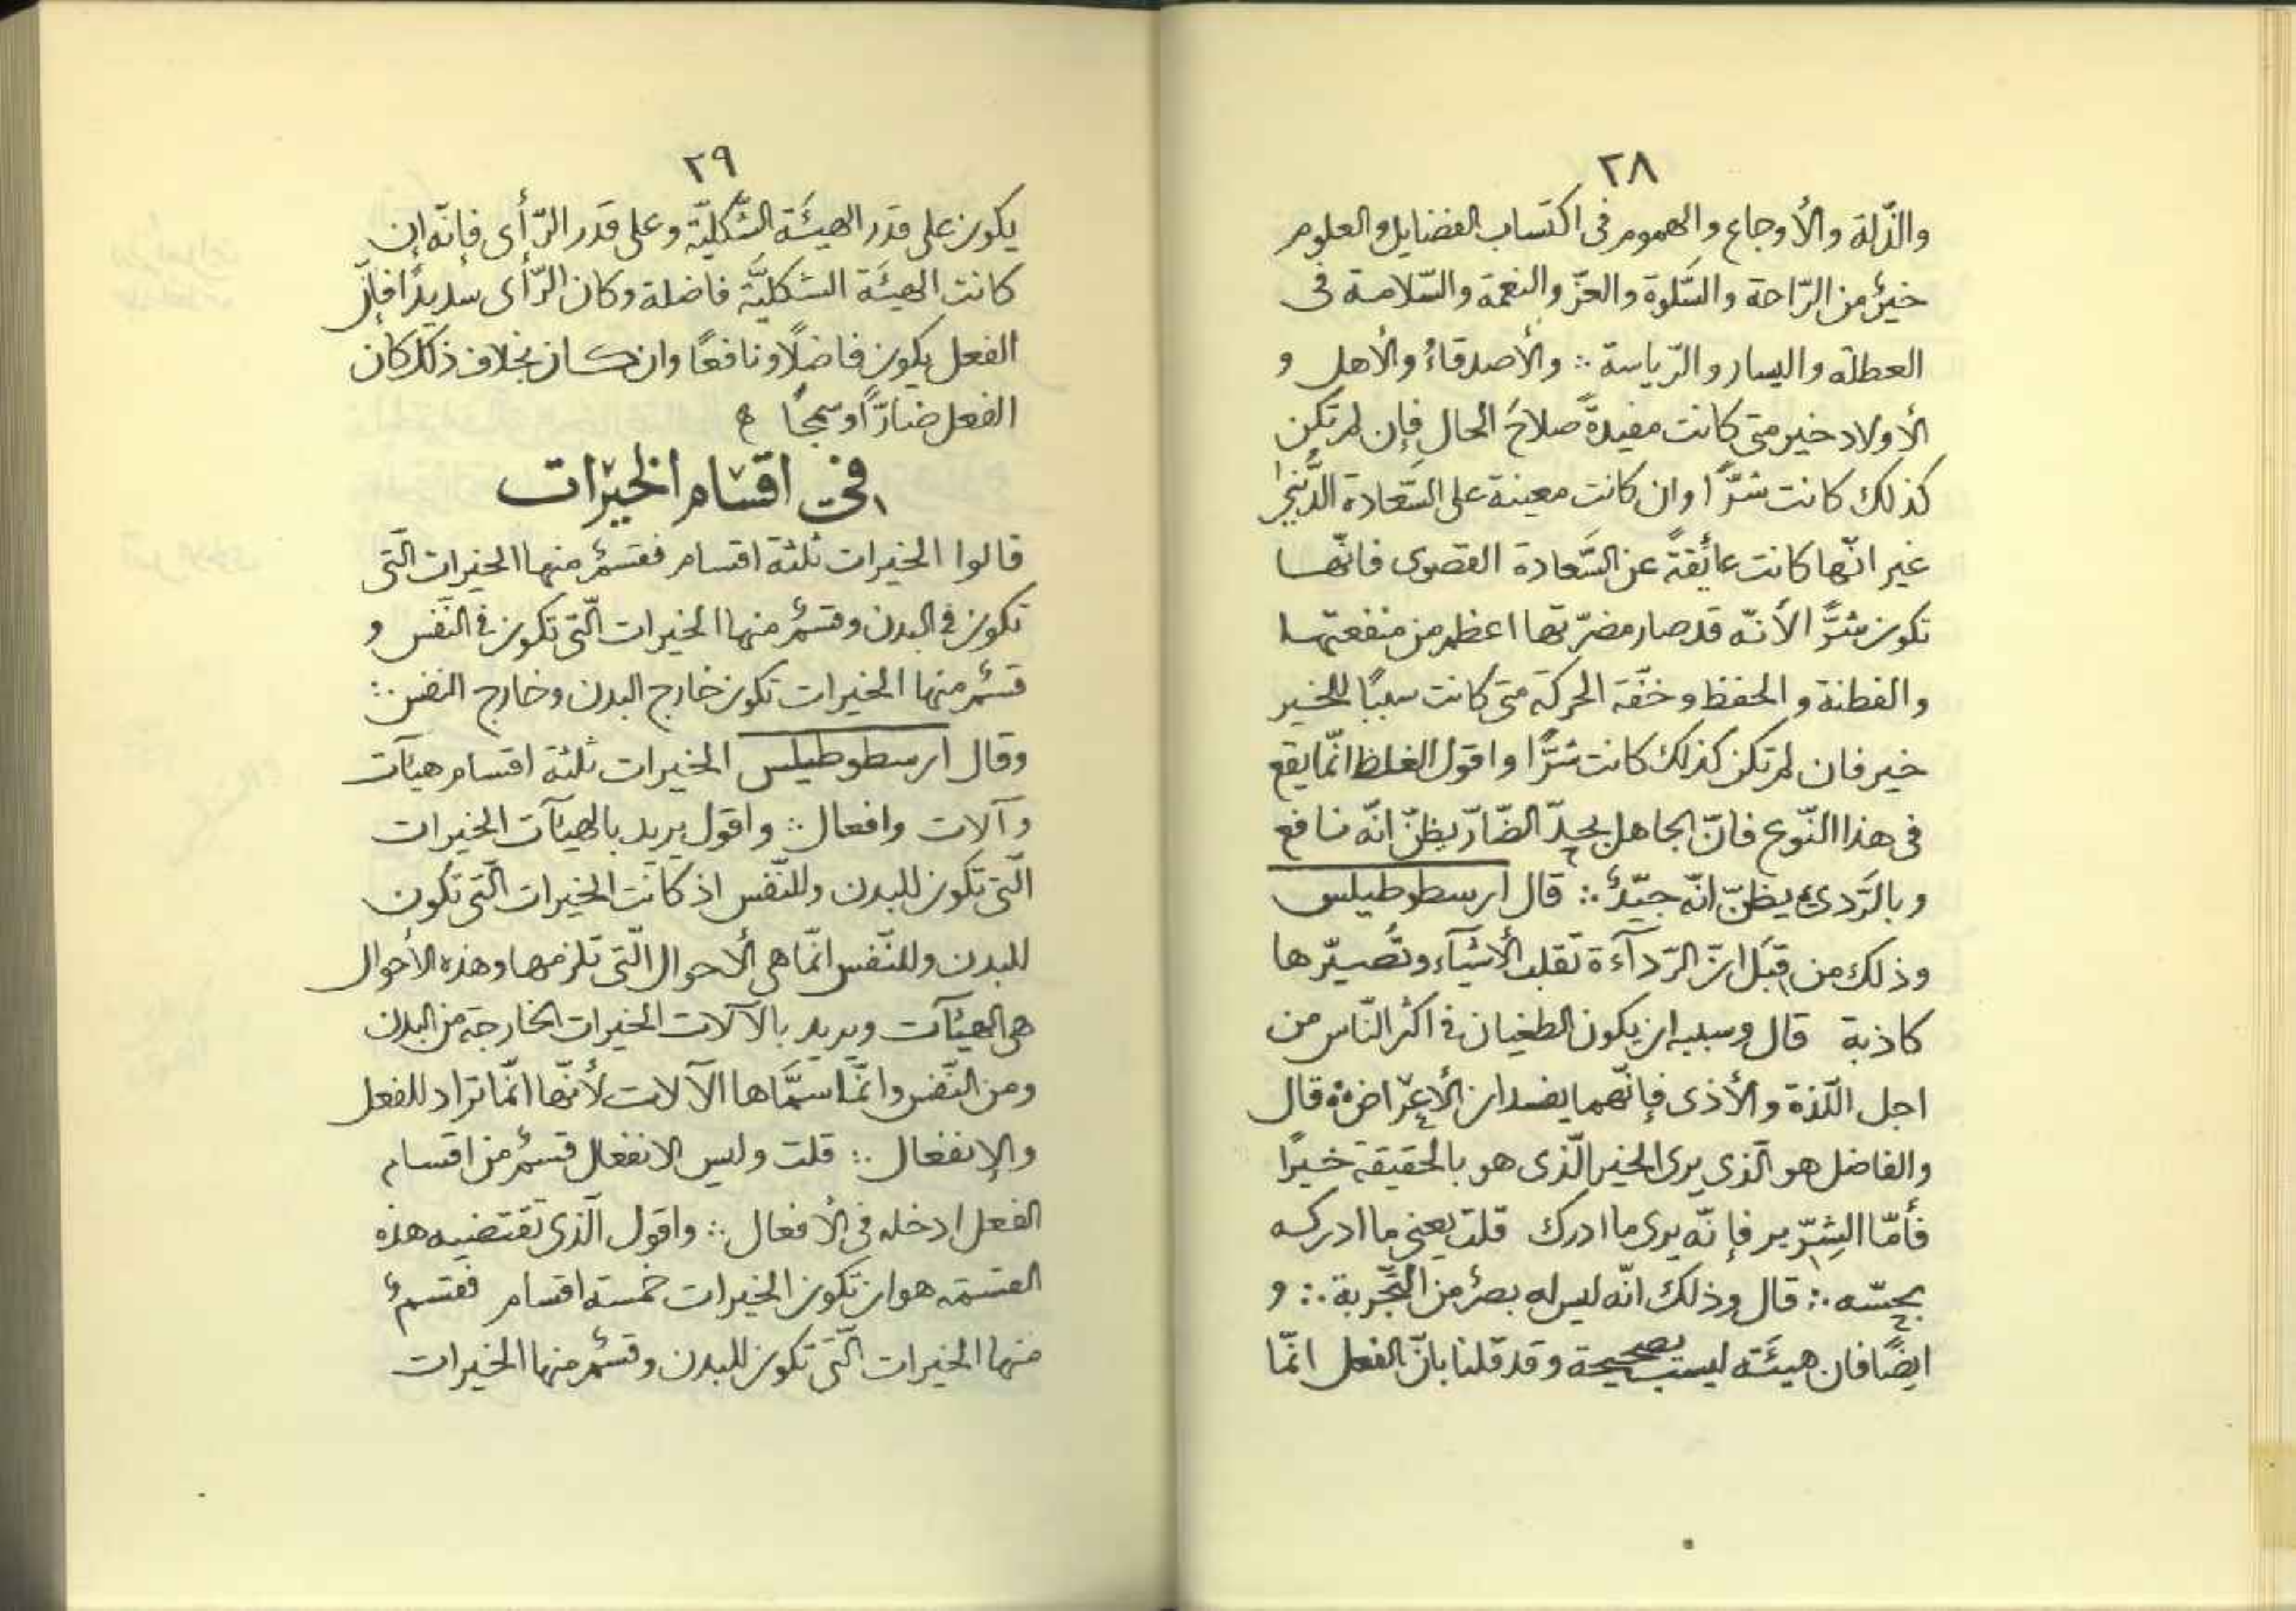 ٢٨
والذّلة والأوجاع والهموم فى اكتساب الفضايل والعلوم
خيرٌ من الرّاحة والسَّلوة والعزّ والنعمة والسّلامة فى
العطلة واليسار والرّياسة ∴ والأصدقاءُ والأهل و
الأولاد خير متى كانت مفيدةً صلاحَ الحال فإن لم تكن
كذلك كانت شرًّا وان كانت معينة على السَّعادة الدُّنيا
غير انّها كانت عائقةً عن السَّعادة القصوى فانّها
تكون شرًّا لأنّه قد صار مضرّتها اعظم من منفعتها
والفطنة والحفظ وخفّة الحركة متى كانت سببًا للخير
خير فان لم تكن كذلك كانت شرًّا واقول الغلط انّما يقع
فى هذا النّوع فانّ الجاهل يجدّ الضّارّ يظنّ انّه نافع
وبالرَّدىء يظنّ انّه جيّدٌ ∴ قال ارسطوطيلس
وذلك من قِبَل انّ الرّدآءة تقلب الأشيآء وتُصيّرها
كاذبة قال وسببه ان يكون الطغيان فى اكثر النّاس من
اجل اللّذة والأذى فإنّهما يفسدان الأعراض ∴ قال
والفاضل هو الّذى يرى الخير الّذى هو بالحقيقة خيرًا
فأمّا الشِّرّير فإنّه يرى ما ادرك قلت يعنى ما ادركه
بحسّه ∴ قال وذلك انّه ليس له بصرٌ من التّجربة ∴ و
ايضًا فان هيئَته ليست بصحيحة وقد قلنا بانّ الفعل انّما
٢٩
يكون على قدر الهيئَة الشّكليّة وعلى قدر الرّأى فإنّه إن
كانت الهيئَة الشكليَّة فاضلة وكان الرّأى سديدًا فإنّ
الفعل يكون فاضلًا ونافعًا وان كان بخلاف ذلك كان
الفعل ضارًّا وسمجًا
فى اقسام الخيرات
قالوا الخيرات ثلثة اقسام فقسمٌ منها الخيرات الّتى
تكون فى البدن وقسمٌ منها الخيرات الّتى تكون فى النّفس و
قسمٌ منها الخيرات تكون خارج البدن وخارج النفس ∴
وقال ارسطوطيلس الخيرات ثلثة اقسام هيآت
وآلات وافعال ∴ واقول يريد بالهيآت الخيرات
الّتى تكون للبدن وللنّفس اذ كانت الخيرات الّتى تكون
للبدن وللنّفس انّما هى الأحوال الّتى تلزمها وهذه الأحوال
هى الهيئآت ويريد بالآلات الخيرات الخارجة من البدن
ومن النّفس وانّما سمَّاها الآلات لأنّها انّما تراد للفعل
والإنفعال ∴ قلت وليس الانفعال قسمٌ من اقسام
الفعل ادخله فى الأفعال ∴ واقول الّذى تقتضيه هذه
القسمة هو ان تكون الخيرات خمسة اقسام فقسمٌ
منها الخيرات الّتى تكون للبدن وقسمٌ منها الخيرات